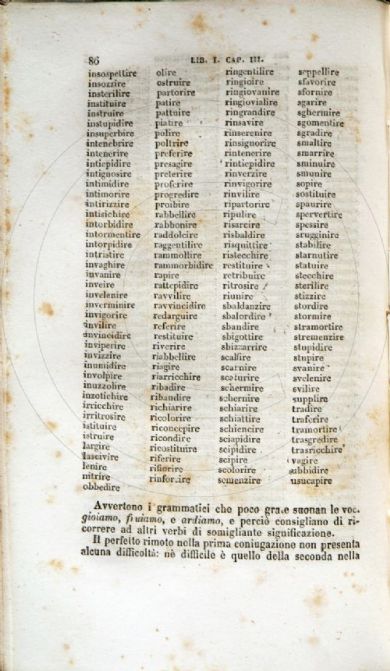 86 LIB. I. CAP. III.
insospettire olire ringentilire seppellire
insozzire ostruire ringioire sfavorire
insterilire partorire ringiovanire sfornire
instituire patire ringiovialire sgarire
instruire pattuire ringrandire sghermire
instupidire piatire rinsavire sgomentire
insuperbire polire rinserenire sgradire
intenebrire poltrire rinsignorire smaltire
intenerire preferire rintenerire smarrire
intiepidire presagire rintiepidire sminuire
intignosire preterire rinverzire smunire
intimidire proferire rinvigorire sopire
intimorire progredire rinvilire sostituire
intirizzire proibire ripartorire spaurire
intisichire rabbellire ripulire spervertire
intorbidire rabbonire risarcire spessire
intormentire raddolcire risbaldire scugginire
intorpidire raggentilire risquittire stabilire
intristire rammollire ristecchire starnutire
invaghire rammorbidire restituire statuire
invanire rapire retribuire stecchire
inveire rattepidire ritrosire sterilire
invelenire ravvilire riunire stizzire
inverminire ravvincidire sbaldanzire stordire
invigorire redarguire sbalordire stormire
invilire referire sbandire stramortire
invincidire restituire sbigottire stremenzire
inviperire riverire sbizzarrire stupidire
invizzire riabbellire scalfire stupire
inumidire riagire scarnire svanire
involpire riarricchire scaturire svelenire
inuzzolire ribadire schermire svilire
inzotichire ribandire schernire supplire
irricchire richiarire schiarire tradire
irritrosire ricolorire schiattire traferire
istituire riconcepire schiencire tramortire
istruire ricondire sciapidire trasgredire
largire ricostituire scipidire trasricchire
lascivire riferire scipire vagire
lenire rifiorire scolorire sabbidire
nitrire rinforzire semenzire usucapire
obbedire
Avvertono i grammatici che poco grate suonan le voc.
gioiamo, fruiamo, e ardiamo, e perciò consigliano di ri-
correre ad altri verbi di somigliante significazione.
Il perfetto rimoto nella prima coniugazione non presenta
alcuna difficoltà: nè difficile è quello della seconda nella